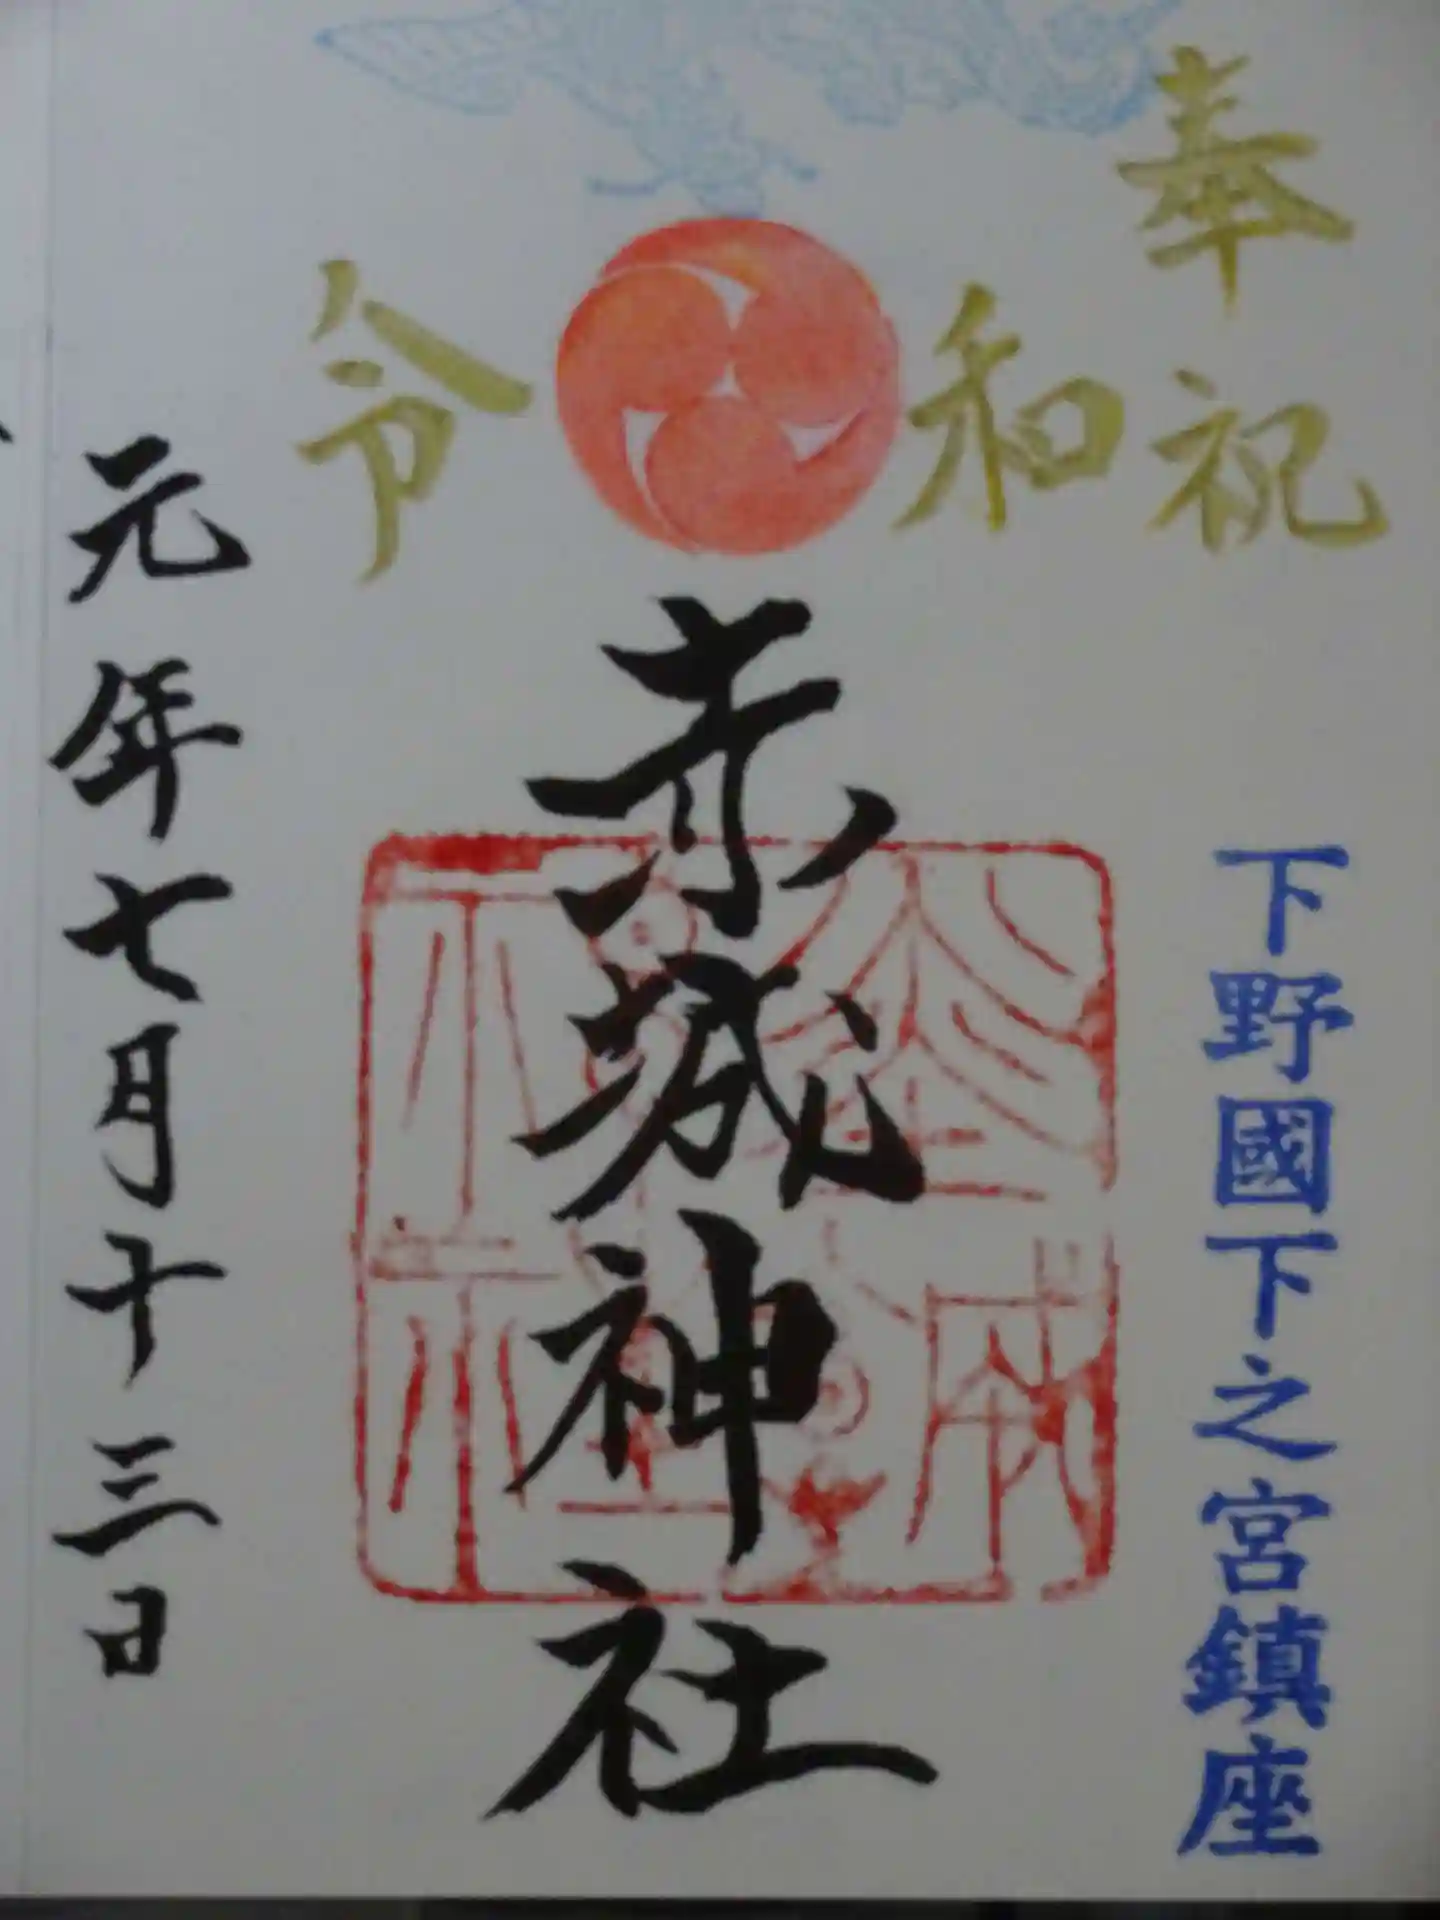 奉祝
令和
下野國下之宮鎮座
赤城神社
元年七月十三日